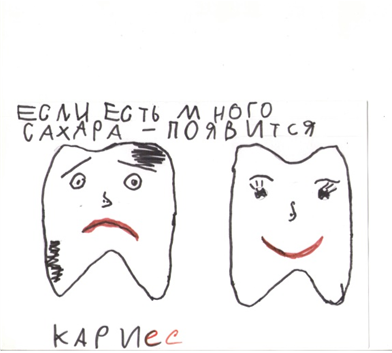 ЕСЛИ ЕСТЬ МНОГО
САХАРА – ПОЯВИТСЯ
КАРИес